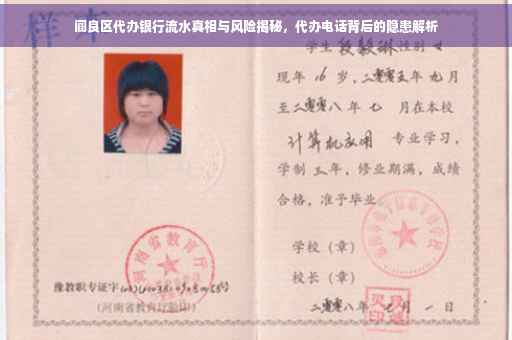 阎良区代办银行流水真相与风险揭秘，代办电话背后的隐患解析
样本
学生段毅琳性别女
现年16岁,二零零五年九月
至二零零八年七月在本校
计算机应用 专业学习,
学制三年，修业期满，成绩
合格，准予毕业
学校（章）
校长（章）
河南省教育厅
豫教职专证字
(河南省教育厅验印)
二零零八年 月一日